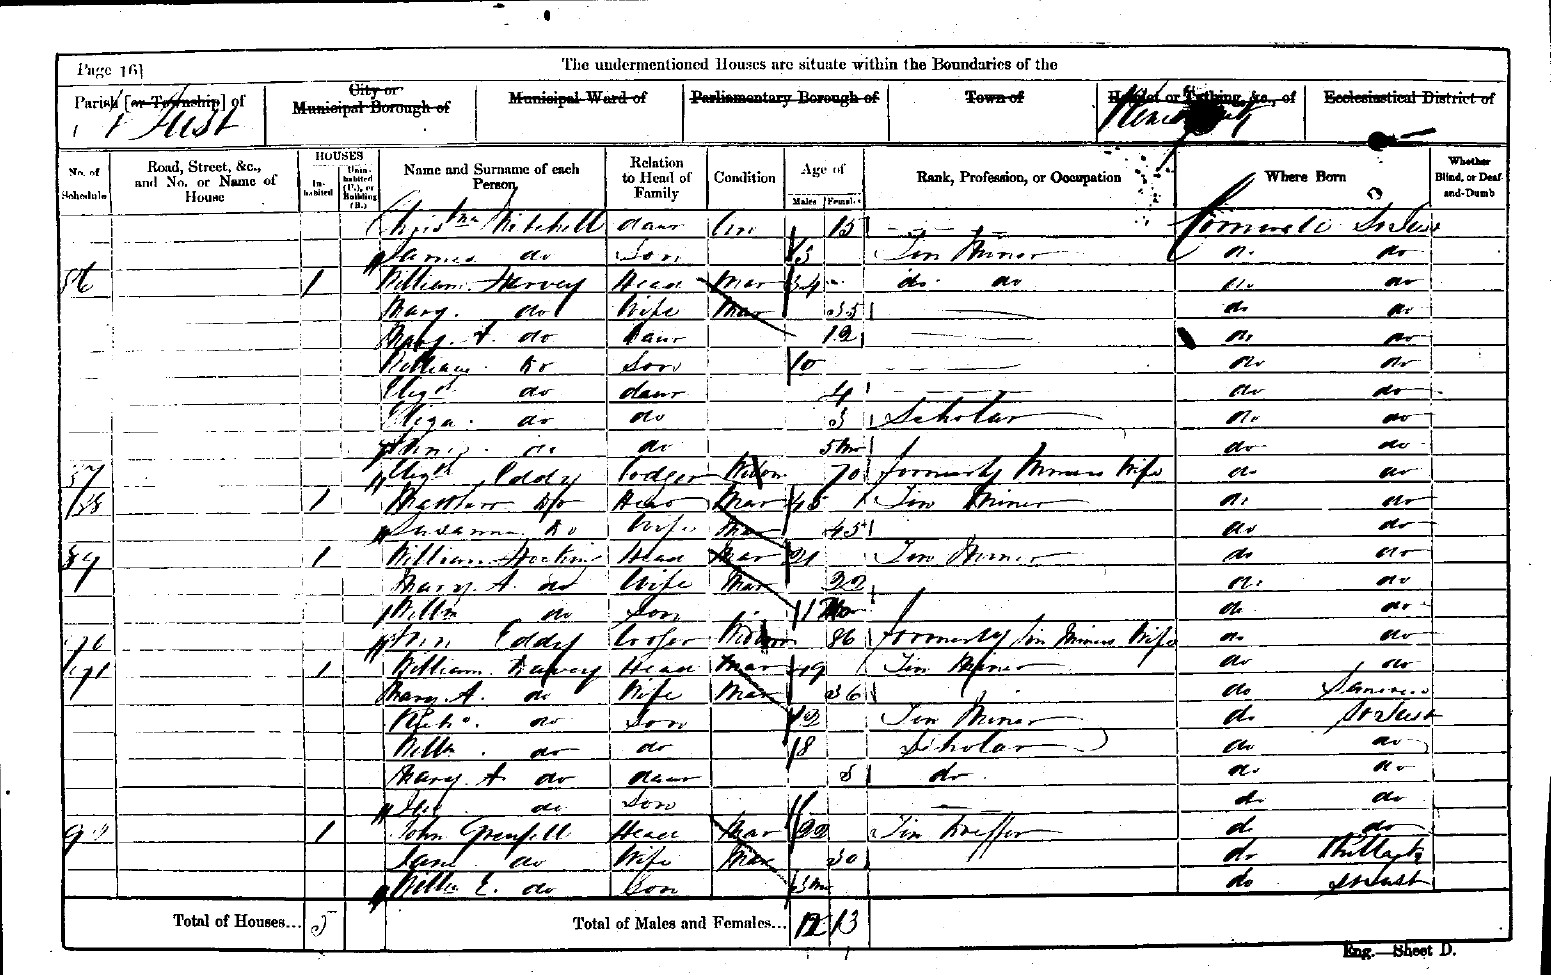 Page 16]
The undermentioned Houses are situate within the Boundaries of the
Parish [or Township] of
St Just
City or Municipal Borough of
Municipal Ward of
Parliamentary Borough of
Town of
Hamlet or Tything, &c., of
Ecclesiastical District of
No. of Schedule
Road, Street, &c., and No. or Name of House
HOUSES
In-habited
Unin-habited (U.), or Building (B.)
Name and Surname of each Person
Relation to Head of Family
Condition
Age of
Males
Females
Rank, Profession, or Occupation
Where Born
Whether Blind, or Deaf-and-Dumb
Mitchell daur Un 15 Cornwall St Just
James do Son 13 Tin Miner do do
86 1 William Harvey Head Mar 34 do do do do
Mary do Wife Mar 35 do do
Mary A. do Daur 12 do do
William Do Son 10 do do
Elizth do daur 4 do do
Eliza do do 3 Scholar do do
do do 5 Mo do do
87 Elizth Eddy Lodger Widow 70 formerly Miners Wife do do
88 1 Matthew Do Head Mar 45 Tin Miner do do
Susanna Do Wife Mar 45 do do
89 1 William Hocking Head Mar 21 Tin Miner do do
Mary A. do Wife Mar 22 do do
Willm do Son 11 Mo do do
90 Ann Eddy Lodger Widow 86 formerly Tin Miners Wife do do
91 1 William Harvey Head Mar 49 Tin Miner do do
Mary A. do Wife Mar 36 do
do Son 12 Tin Miner do St Just
Willm do do 8 Scholar do do
Mary A. do daur 5 do do do
do Son do do
92 1 John Grenfell Head Mar 22 Tin do do
Jane do Wife Mar 30 do Phillack
Willm E. do Son 3 Mo do St Just
Total of Houses... 5
Total of Males and Females... 12 13
Eng.—Sheet D.